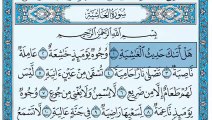 سُورَةُ الْغَاشِيَةِ
بِسْمِ اللَّهِ الرَّحْمَٰنِ الرَّحِيمِ
هَلْ أَتَىٰكَ حَدِيثُ الْغَٰشِيَةِ ۝١ وُجُوهٌ يَوْمَئِذٍ خَٰشِعَةٌ ۝٢ عَامِلَةٌ
نَّاصِبَةٌ ۝٣ تَصْلَىٰ نَارًا حَامِيَةً ۝٤ تُسْقَىٰ مِنْ عَيْنٍ ءَانِيَةٍ ۝٥ لَّيْسَ
لَهُمْ طَعَامٌ إِلَّا مِن ضَرِيعٍ ۝٦ لَّا يُسْمِنُ وَلَا يُغْنِي مِن جُوعٍ ۝٧ وُجُوهٌ
يَوْمَئِذٍ نَّاعِمَةٌ ۝٨ لِّسَعْيِهَا رَاضِيَةٌ ۝٩ فِي جَنَّةٍ عَالِيَةٍ ۝١٠ لَّا تَسْمَعُ